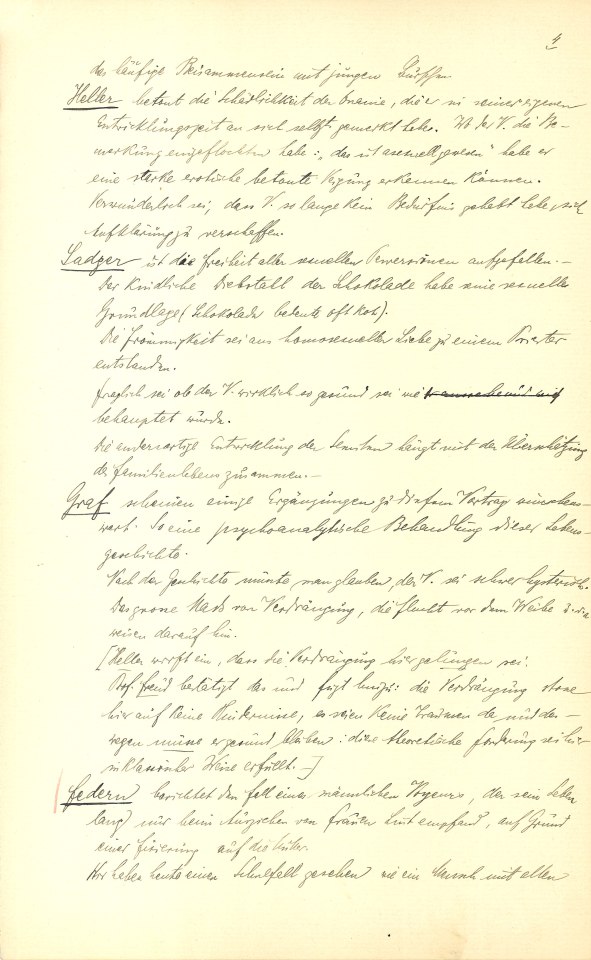 4
das häufige Beisammensein mit jungen Burschen
Heller betont die Schädlichkeit der Onanie, die er in seiner eigenen
Entwicklungszeit an sich selbst gemerkt habe. Ist der V. die Be-
merkung eingeflochten habe: „das ist asexuell gewesen" habe er
eine starke erotische betonte Neigung erkennen können.
Verwunderlich sei, dass V. so lange kein Bedürfnis gehabt habe, sich
Aufklärung zu verschaffen.
Sadger ist die Freiheit aller sexuellen Perversionen aufgefallen. –
Der kindliche Diebstahl der Schokolade habe seine sexuelle
Grundlage (Schokolade bedeute oft Kot).
Die Frömmigkeit sei aus homosexueller Liebe zu einem Priester
entstanden.
fraglich sei ob der V. wirklich so gesund sei wie
behauptet wurde.
Die andersartige Entwicklung der hängt mit der Überschätzung
des Familienlebens zusammen. –
Graf scheinen einige Ergänzungen zu diesem Vortrag wünschens-
wert. So eine psychoanalytische Behandlung dieser Lebens-
geschichte.
Nach der Geschichte müsste man glauben, der V. sei schwer hysterisch.
Das grosse Mass von Verdrängung, die Flucht vor dem Weibe
weisen darauf hin.
[Heller wirft ein, dass die Verdrängung hier gelungen sei.
Prof. Freud bestätigt das und fügt hinzu: die Verdrängung stosse
hier auf keine Hindernisse, es seien keine Traumen da und des-
wegen müsse er gesund bleiben: diese theoretische Forderung sei hier
in klassischer Weise erfüllt. –]
Federn berichtet den Fall eines männlichen Voyeurs, der sein Leben
lang nur beim von Frauen Lust empfand, auf Grund
einer Fixierung auf die Mutter.
Wir haben heute einen gesehen wie ein Mensch mit allen